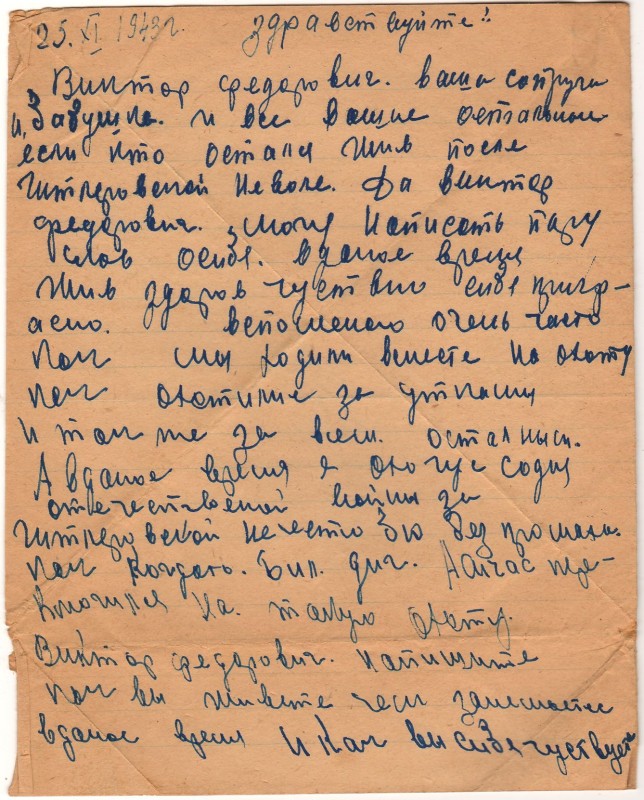 25. XI 1943 г. Здравствуйте!!
Виктор федорович. ваша супруга
и, Бабушка. и все ваше остальное
если кто остался жив после
гитлеровской неволе. Да виктор
федорович. могу написать пару
слов осибе. вданое время
жив здоров чуствую сибя прикр-
асно. вспоменаю очень часто
как мы ходили вместе на охоту
как охотилис за утками
и так же за всем. осталным.
А вданое время я охочус содня
отечественой войны за
гитлеровской нечестю Бю без промаха.
как когдато. Бил. диг. Асичас пре-
ключился на. такую охоту.
Виктор федорович. напишите
как вы живете чем занемаетес
вданое время и как вы сибя чуствуете